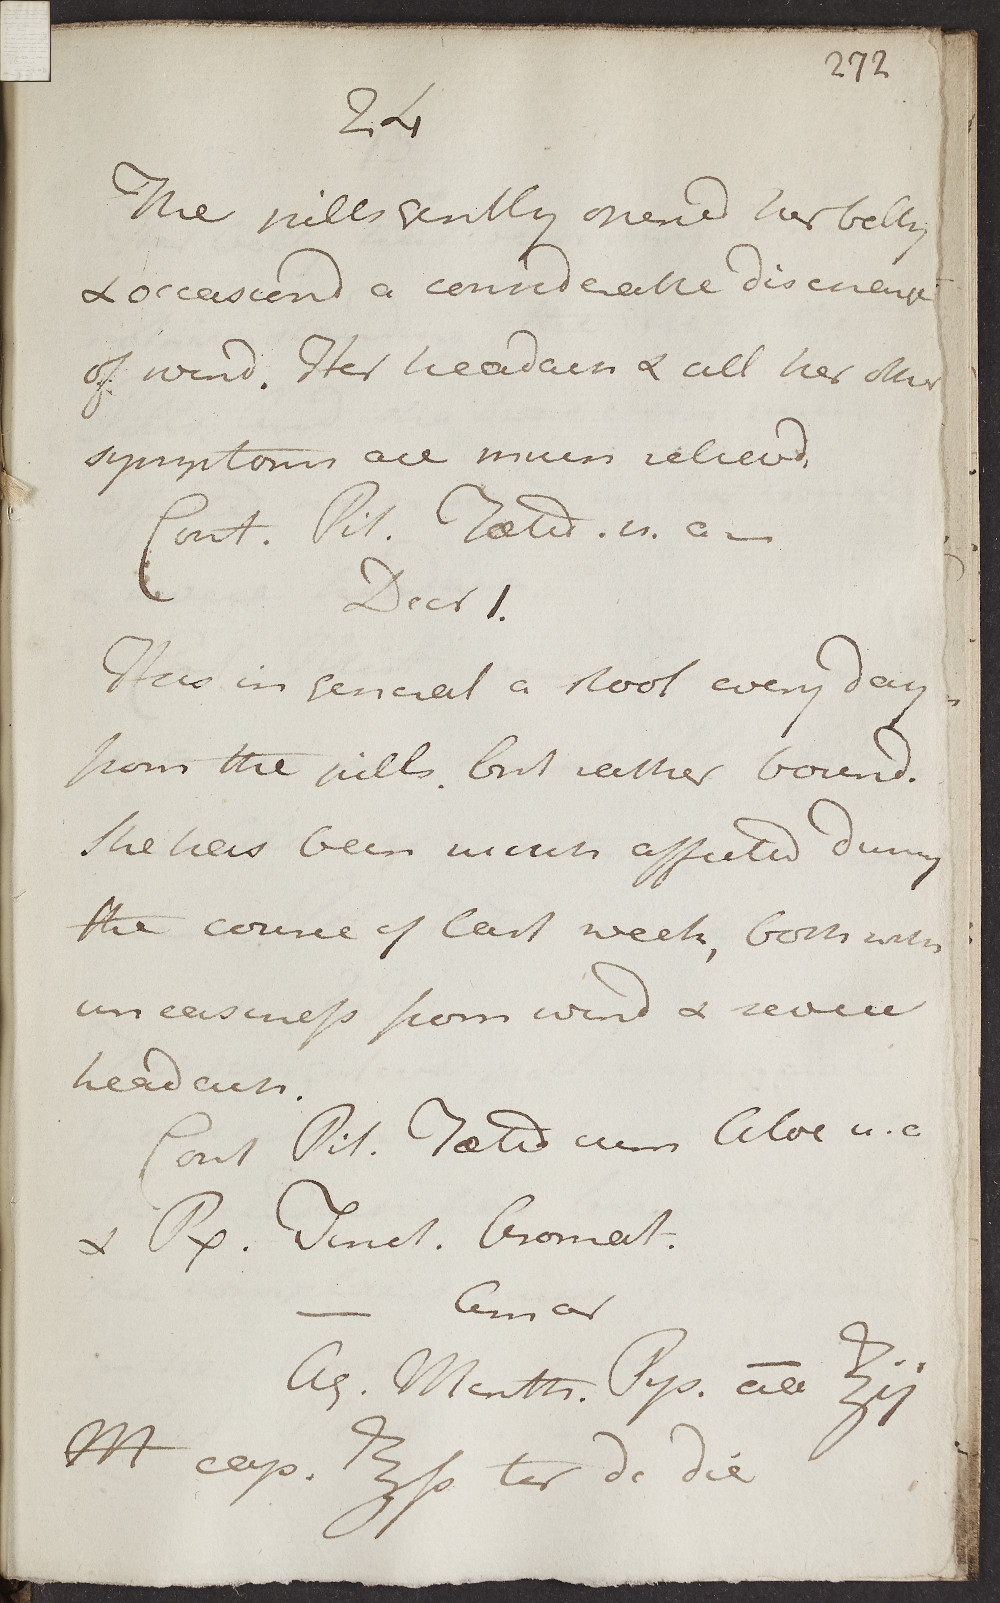 272
24
The pills gently opend her belly
& occasiond a considerable discharge
of wind. Her headach & all her other
symptoms are much relievd.
Cont. Pil. Fœtid. u. a
Decr 1.
Has in general a stool every day
from the pills, but rather bound.
She has been much affected during
the course of last week, both with
uneasiness from wind & severe
headach.
Cont Pil. Fœtid cum Aloe u. a
& Rx. Tinct. Aromat.
— Amar
Aq. Menth. Pip. āā ℥ij
M cap. ℥ß ter de die